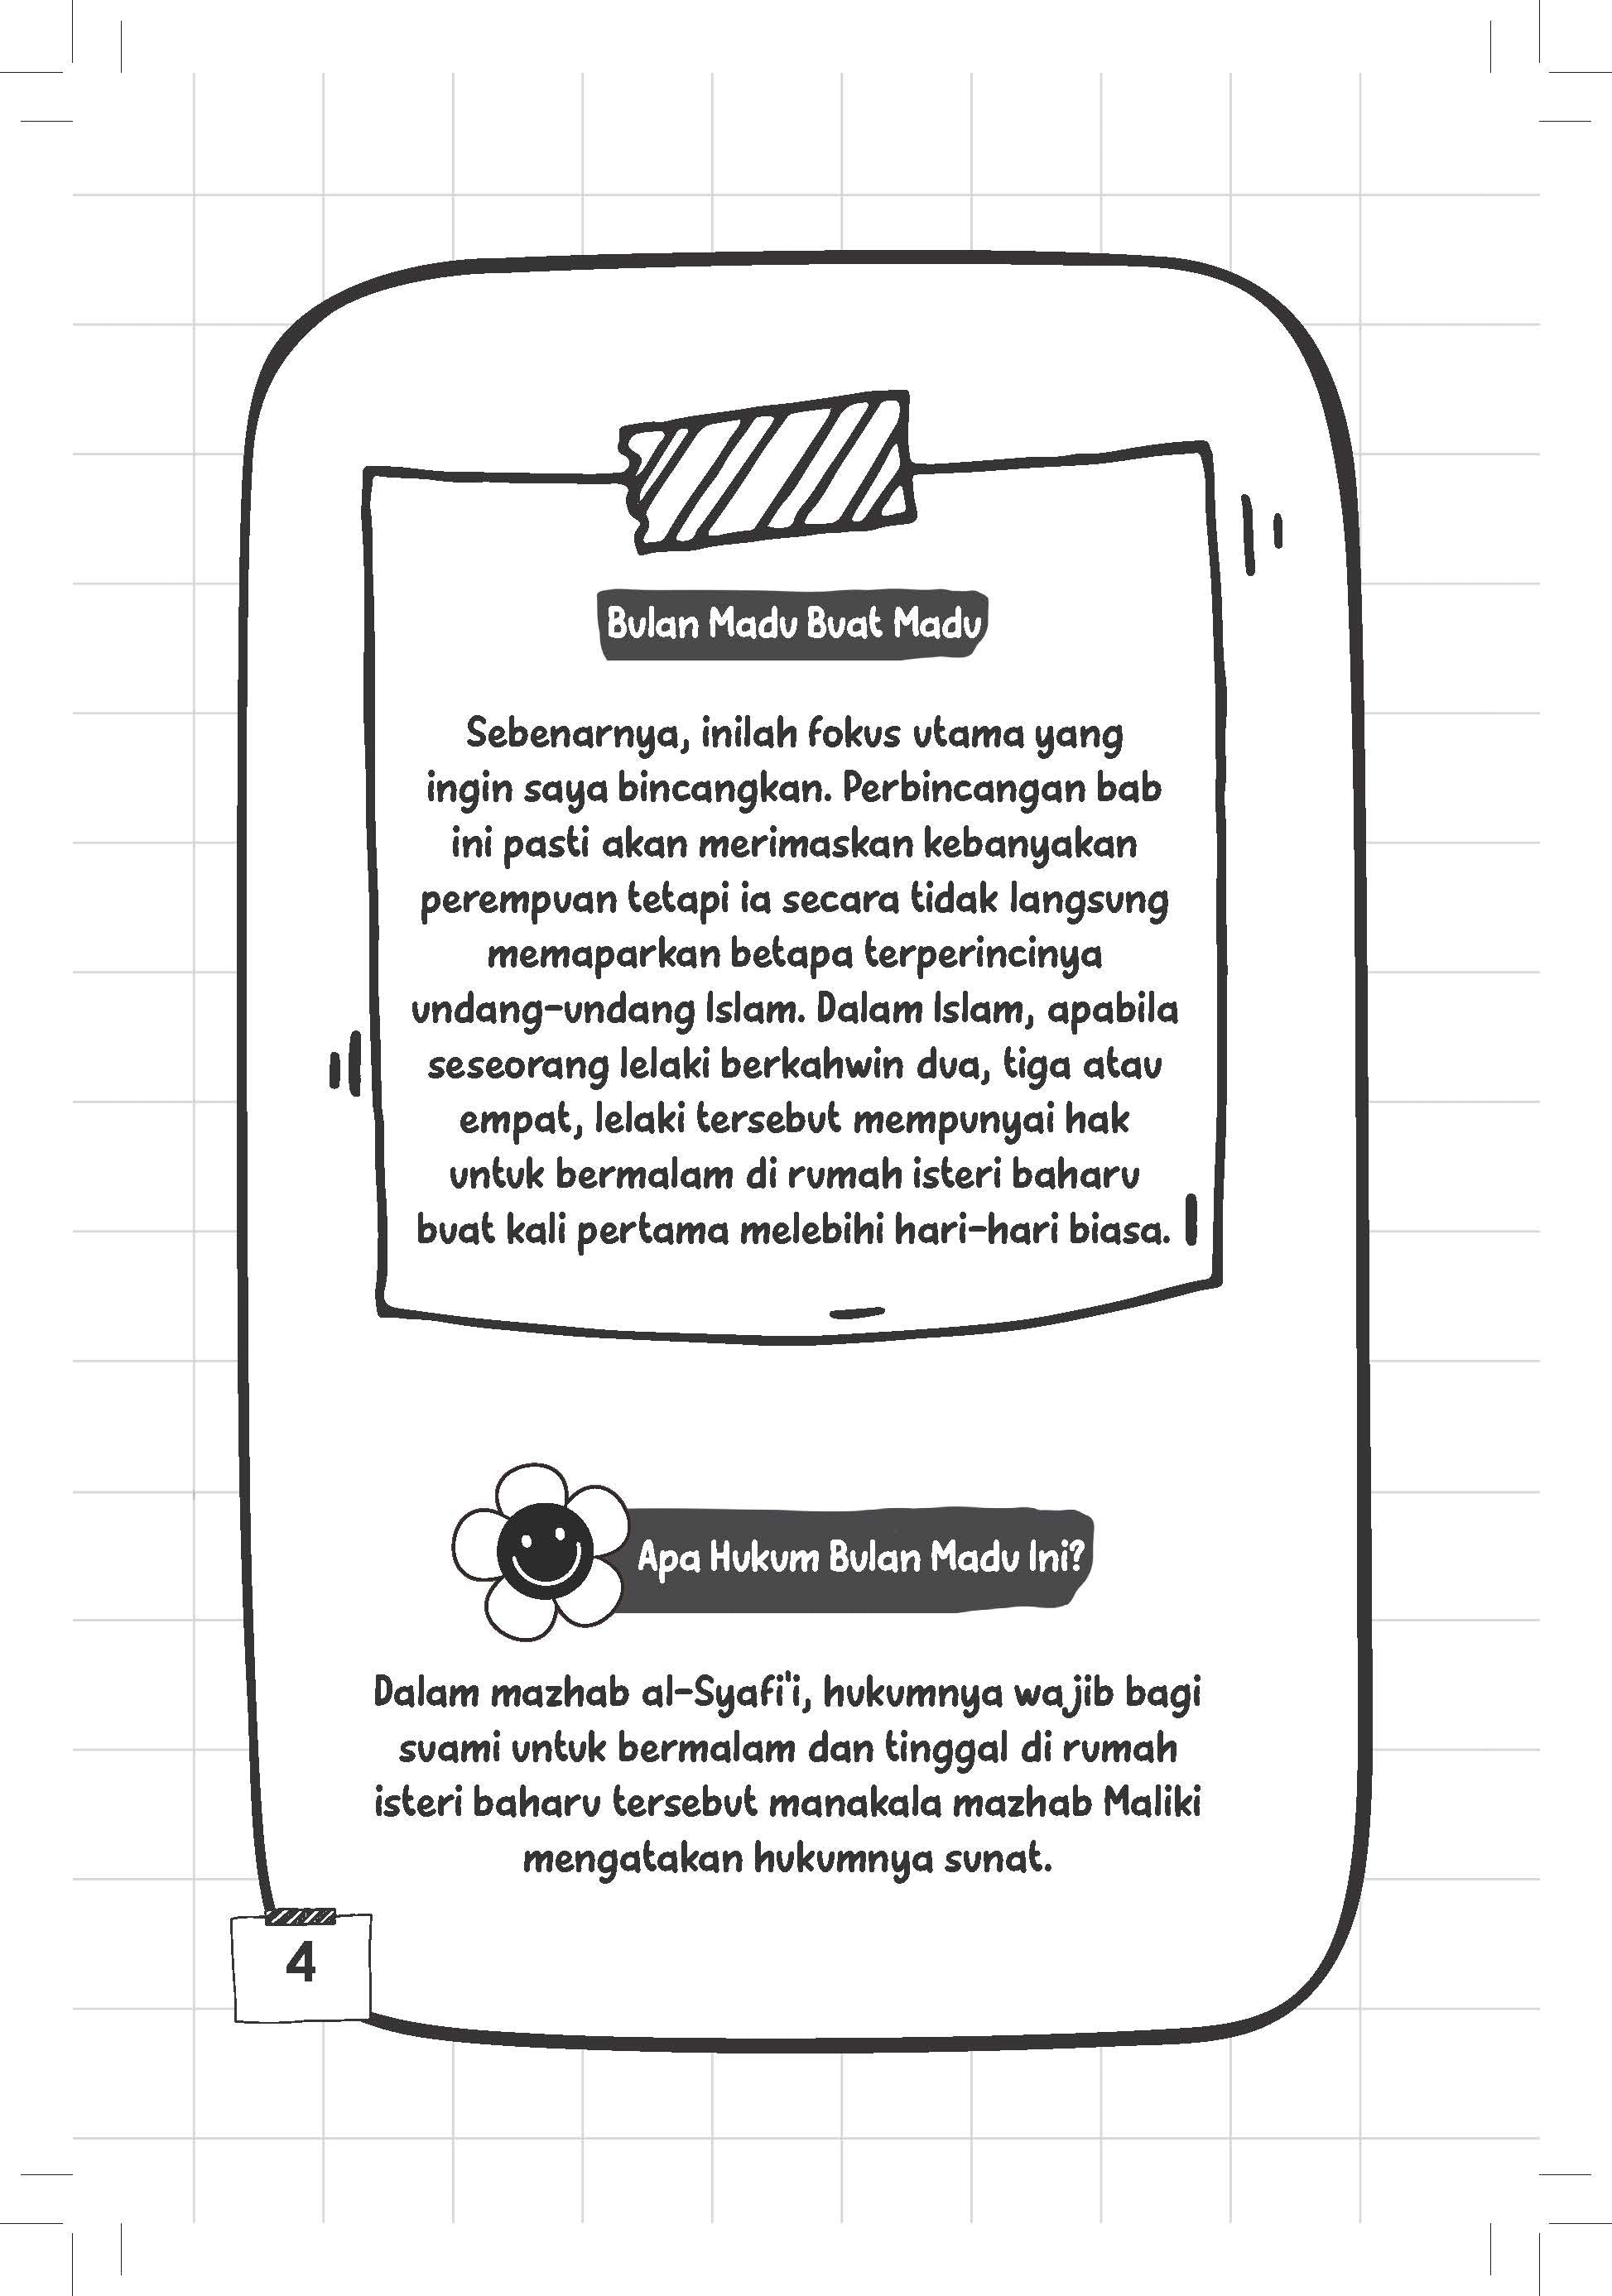 Bulan Madu Buat Madu
Sebenarnya, inilah fokus utama yang
ingin saya bincangkan. Perbincangan bab
ini pasti akan merimaskan kebanyakan
perempuan tetapi ia secara tidak langsung
memaparkan betapa terperincinya
undang-undang Islam. Dalam Islam, apabila
seseorang lelaki berkahwin dua, tiga atau
empat, lelaki tersebut mempunyai hak
untuk bermalam di rumah isteri baharu
buat kali pertama melebihi hari-hari biasa.
Apa Hukum Bulan Madu Ini?
Dalam mazhab al-Syafi'i, hukumnya wajib bagi
suami untuk bermalam dan tinggal di rumah
isteri baharu tersebut manakala mazhab Maliki
mengatakan hukumnya sunat.
4